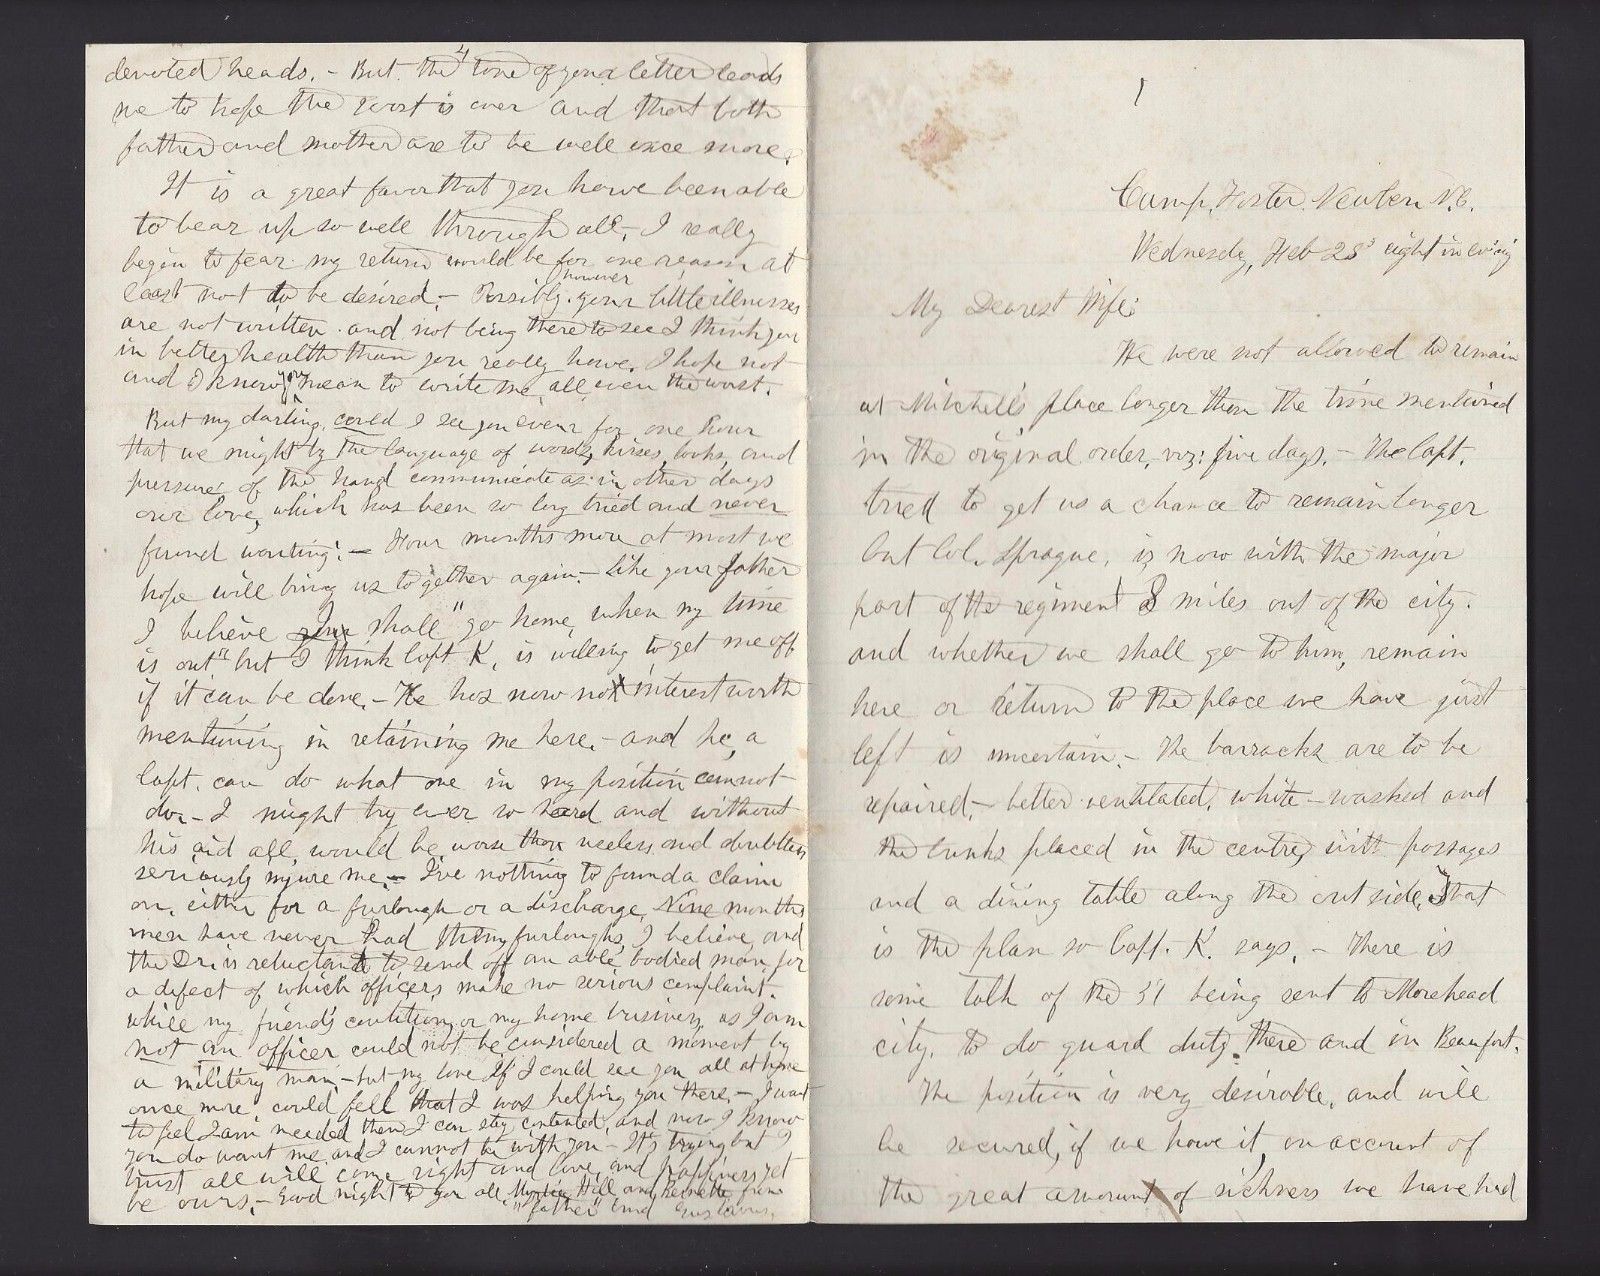 1
Camp, Foster Newbern N.C.
Wednesday, Feb 25 eight in ev'ing
My Dearest Wife:
We were not allowed to remain
at Mitchell's place longer than the time mentioned
in the original order, viz: five days. – The Capt.
tried to get us a chance to remain longer
but Col. Sprague, is now with the major
part of the regiment 8 miles out of the city.
and whether we shall go to him, remain
here or return to the place we have just
left is uncertain. – The barracks are to be
repaired, – better ventilated, white-washed and
the bunks placed in the centre, with passages
and a dining table along the out side, That
is the plan so Capt. K. says. – There is
some talk of the 51 being sent to Morehead
city, to do guard duty there and in Beaufort.
The position is very desirable, and will
be secured, if we have it, on account of
the great amount of sickness we have had
4
devoted heads. – But the tone of your letter leads
me to hope the worst is over and that both
father and mother are to be well once more.
It is a great favor that you have been able
to bear up so well through all. I really
began to fear my return would be for one reason at
least not to be desired. – Possibly however your little illnesses
are not written and not being there to see I think you
in better health than you really have. I hope not
and I know you mean to write me all, even the worst.
But my darling, could I see you even for one hour
that we might by the language of words, kisses, looks, and
pressure of the hand communicate as in other days
our love, which has been so long tried and never
found wanting! – Four months more at most we
hope will bring us together again. – Like your father
I believe shall "go home, when my time
is out" but I think Capt K, is willing to get me off
if it can be done. – He has now not interest worth
mentioning in retaining me here. – and he, a
Capt. can do what one in my position cannot
do. – I might try ever so hard and without
his aid all, would be worse than useless and doubtless
seriously injure me. – I've nothing to found a claim
on, either for a furlough or a discharge, Nine months
men have never had them furloughs, I believe, and
the Dr. is reluctant to send off an able bodied man, for
a defect of which officers make no serious complaint.
while my friend's condition, or my home business, as I am
not an officer could not be considered a moment by
a military man, – but my love If I could see you all at home
once more, could feel that I was helping you there, – I want
to feel I am needed then I can stay contented, and now I know
you do want me, and I cannot be with you – It's trying but I
trust all will come right and love, and happiness yet
be ours. – Good night to you all, Hill and from
"father" and Gustavus.